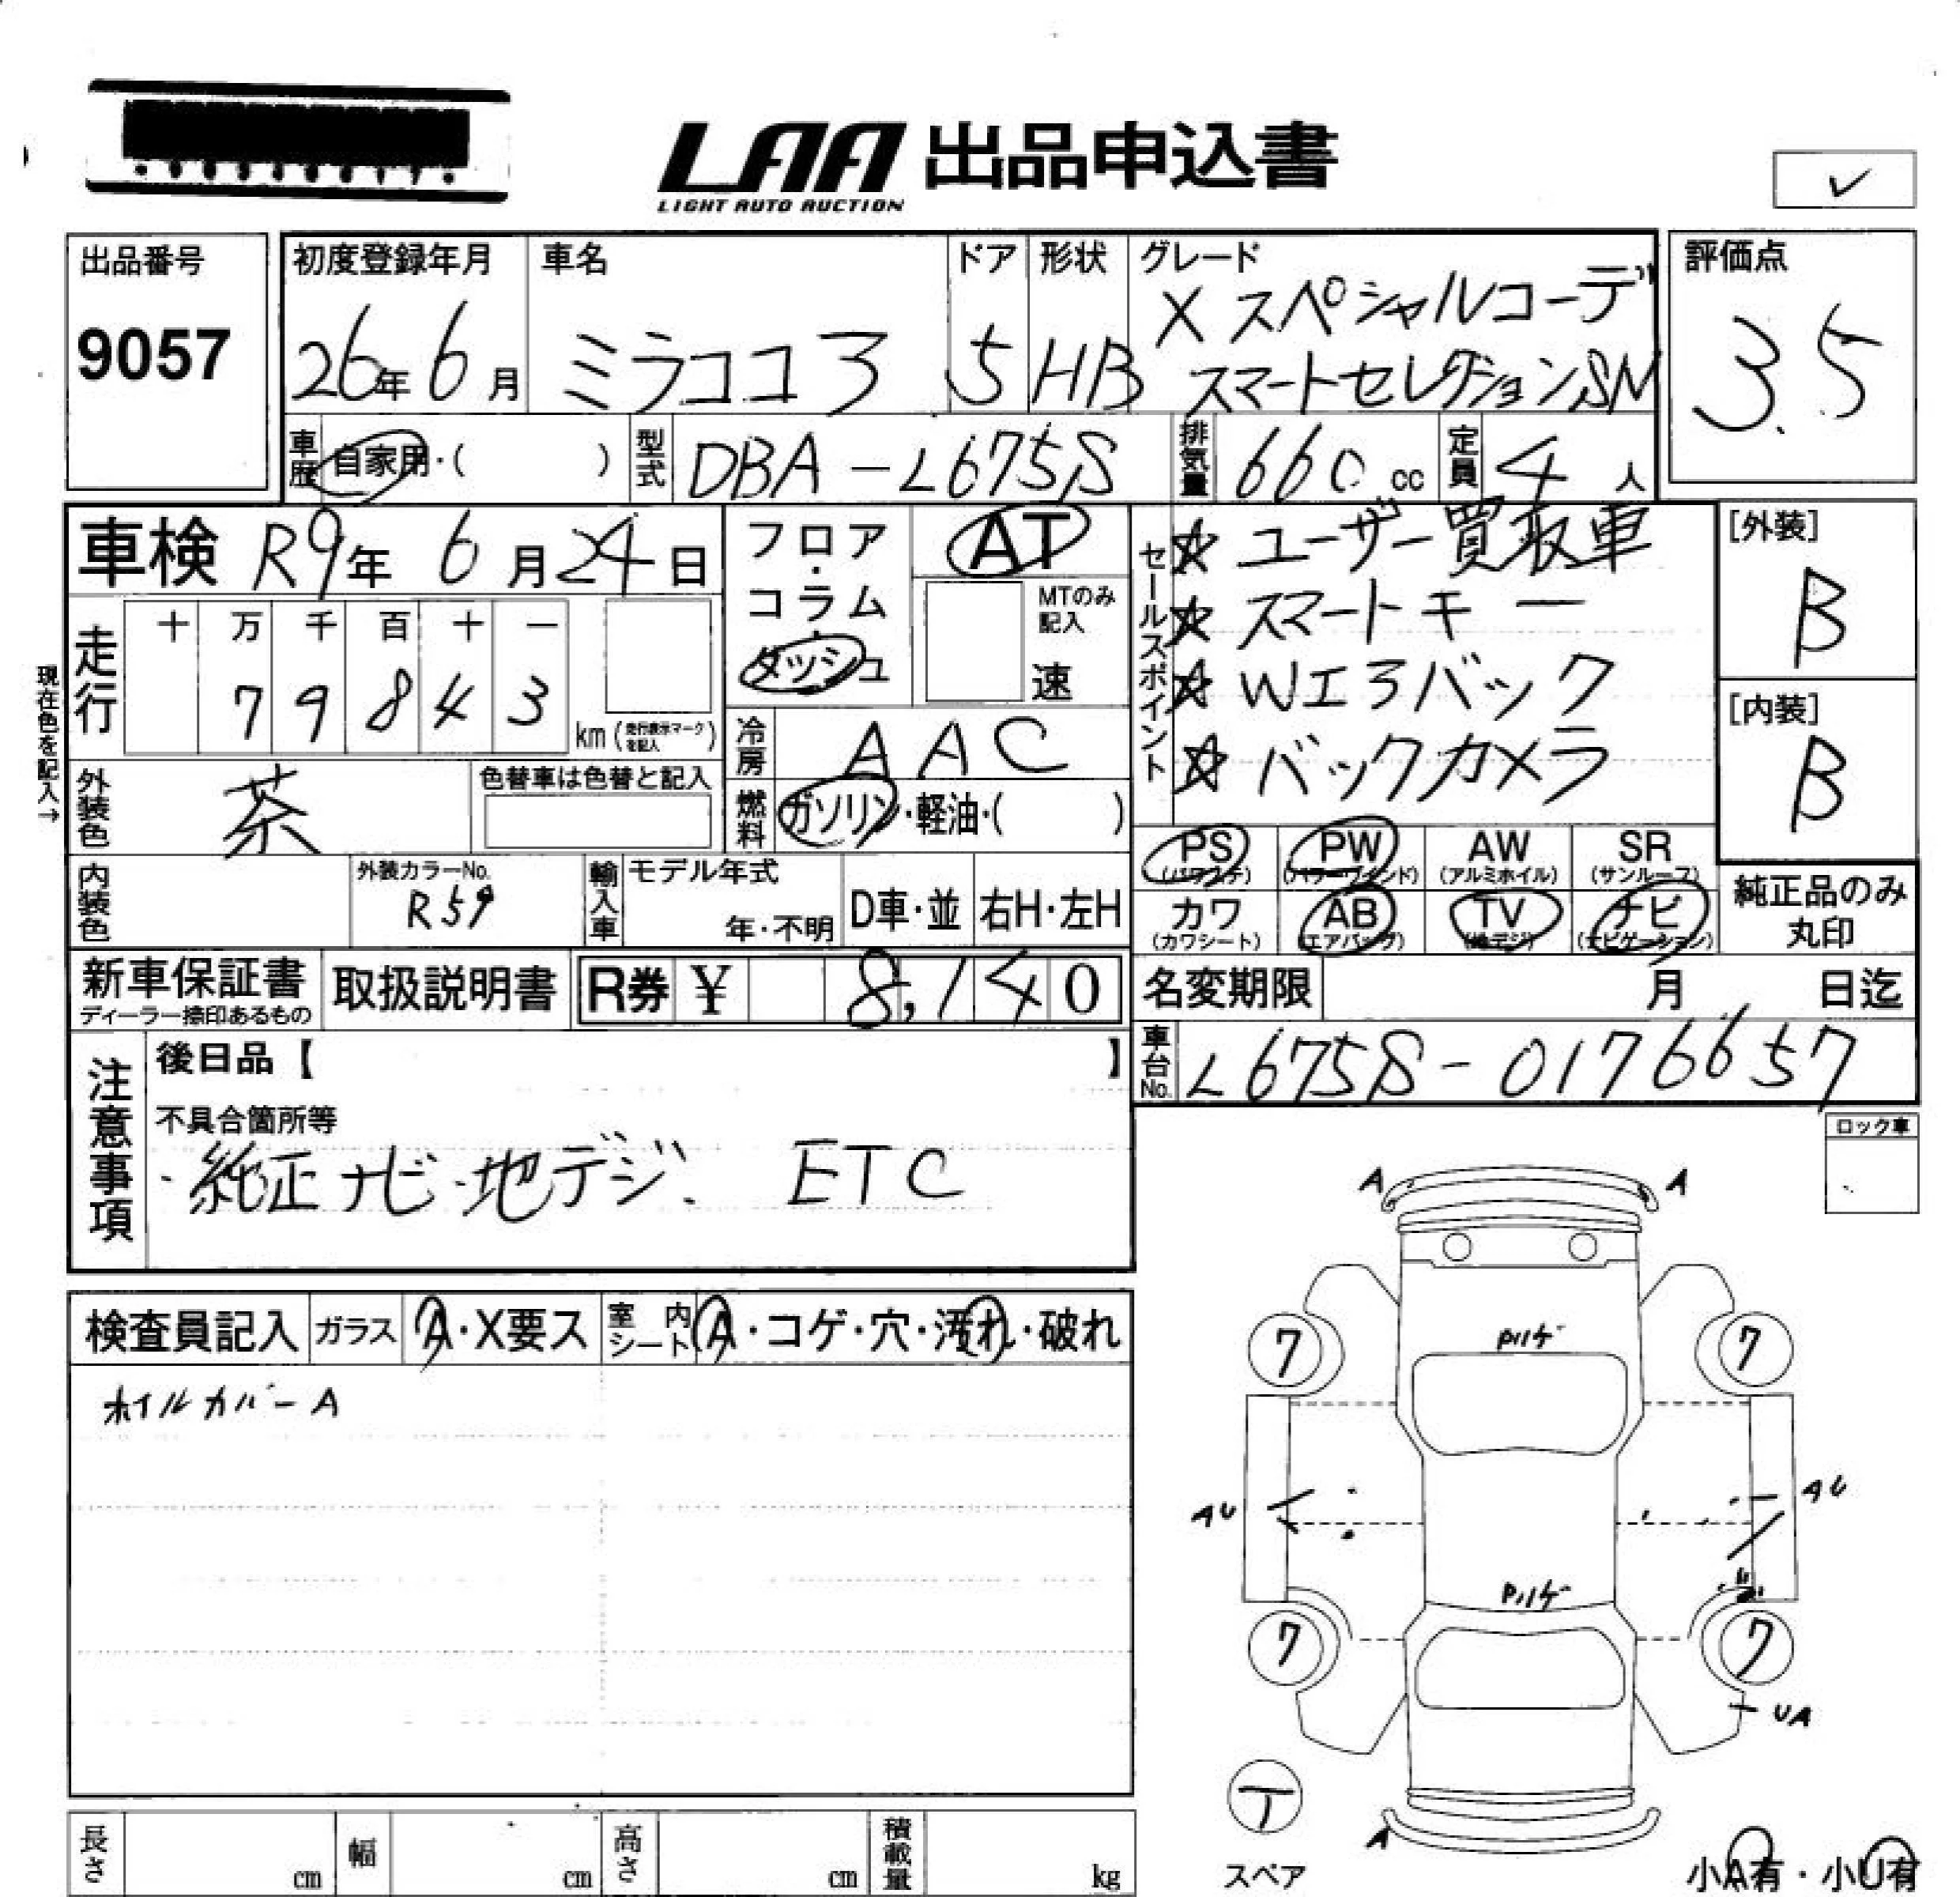 LAA 出品申込書
LIGHT AUTO AUCTION
✓
出品番号
9057
初度登録年月
26年6月
車名
ミラココア
ドア
5
形状
HB
グレード
X スペシャルコーデ
スマートセレクションSN
評価点
3.5
車歴 自家用・( )
型式 DBA-L675S
排気量 660 cc
定員 4 人
車検 R9年 6月24日
フロア・コラム・ダッシュ
AT
MTのみ記入
速
セールスポイント
☆ ユーザー買取車
☆ スマートキー
☆ Wエアバック
☆ バックカメラ
[外装]
B
[内装]
B
現在色を記入→
走行
十 万 千 百 十 一
7 9 8 4 3 km (走行表示マークを記入)
冷房 AAC
外装色 茶
色替車は色替と記入
燃料 ガソリン・軽油・( )
PS (パワステ)
PW (パワーウインド)
AW (アルミホイル)
SR (サンルーフ)
カワ (カワシート)
AB (エアバッグ)
TV (地デジ)
ナビ (ナビゲーション)
純正品のみ丸印
内装色
外装カラーNo.
R59
輸入車
モデル年式
年・不明
D車・並
右H・左H
新車保証書
ディーラー捺印あるもの
取扱説明書
R券 ¥ 8,140
名変期限 月 日迄
車台No. L675S-0176657
注意事項
後日品【 】
不具合箇所等
・純正ナビ・地デジ、 ETC
ロック車
検査員記入
ガラス A・X要ス
室内シート A・コゲ・穴・汚れ・破れ
ホイルカバーA
A A
7 7
AU AU
7 7
UA
スペア
A
小A有・小U有
長さ cm
幅 cm
高さ cm
積載量 kg